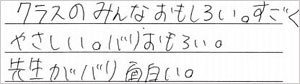 クラスのみんなおもしろい。すごく
やさしい。バリおもろい。
先生がバリ面白い。